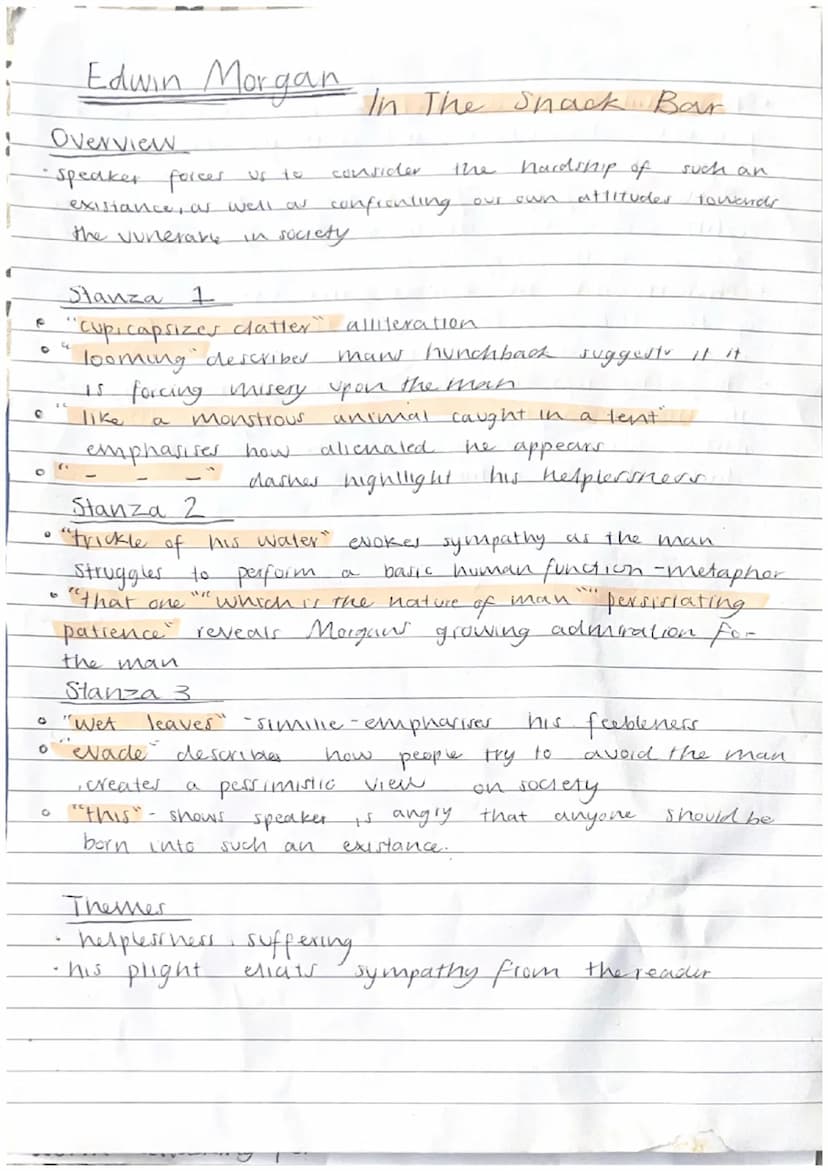 Edwin Morgan
In The Snack Bar
Overview
· speaker forces us to consider the hardship of such an
existance, as well as confronting our own attitudes towards
the vunerable in society
Stanza 1
• "cup capsizes clatter" alliteration
• "looming" describes mans hunchback suggests if it
is forcing misery upon the man
• "like a monstrous animal caught in a tent"
emphasises how alienated he appears
• "- - -" dashes highlight his helplessness
Stanza 2
• "trickle of his water" evokes sympathy as the man
struggles to perform a basic human function - metaphor
• "that one" "which is the nature of man" "persisiating
patience" reveals Morgans growing admiration for
the man
Stanza 3
• "wet leaves" - simile - emphasises his feebleness
• "evade" describes how people try to avoid the man
, creates a pessimistic view on society
• "this" - shows speaker is angry that anyone should be
born into such an existance.
Themes
· helplessness, suffering
· his plight eliciats sympathy from the reader